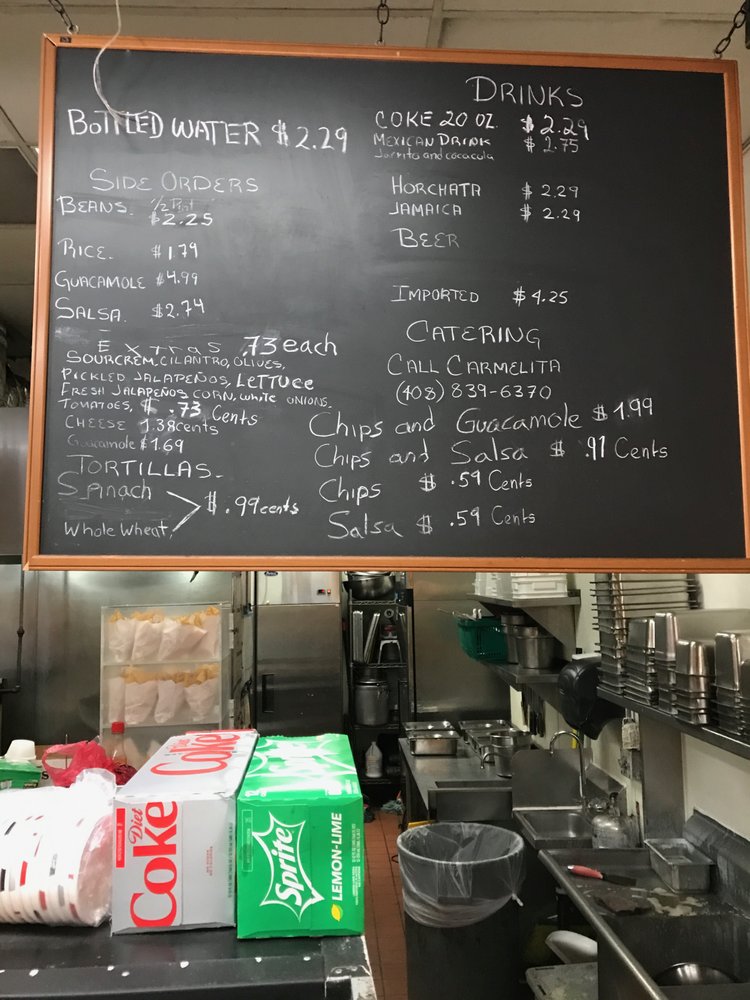 BOTTLED WATER $2.29
SIDE ORDERS
BEANS. 1/2 Pint
$2.25
RICE. $1.79
GUACAMOLE $4.99
SALSA. $2.74
Extras .73 each
SOURCREM, CILANTRO, OLIVES,
PICKLED JALAPEÑOS, LETTUCE
FRESH JALAPEÑOS CORN, WHITE ONIONS.
TOMATOES, $ .73 Cents
CHEESE 1.38cents
Guacamole $1.69
TORTILLAS.
Spinach
$ .99cents
Whole Wheat,
DRINKS
COKE 20 OZ. $2.29
MEXICAN DRINK $2.75
Jarrito and cocacola
HORCHATA $2.29
JAMAICA $2.29
BEER
IMPORTED $4.25
CATERING
CALL CARMELITA
(408) 839-6370
Chips and Guacamole $1.99
Chips and Salsa $ .91 Cents
Chips $ .59 Cents
Salsa $ .59 Cents
Diet Coke
Coke
Sprite
LEMON-LIME